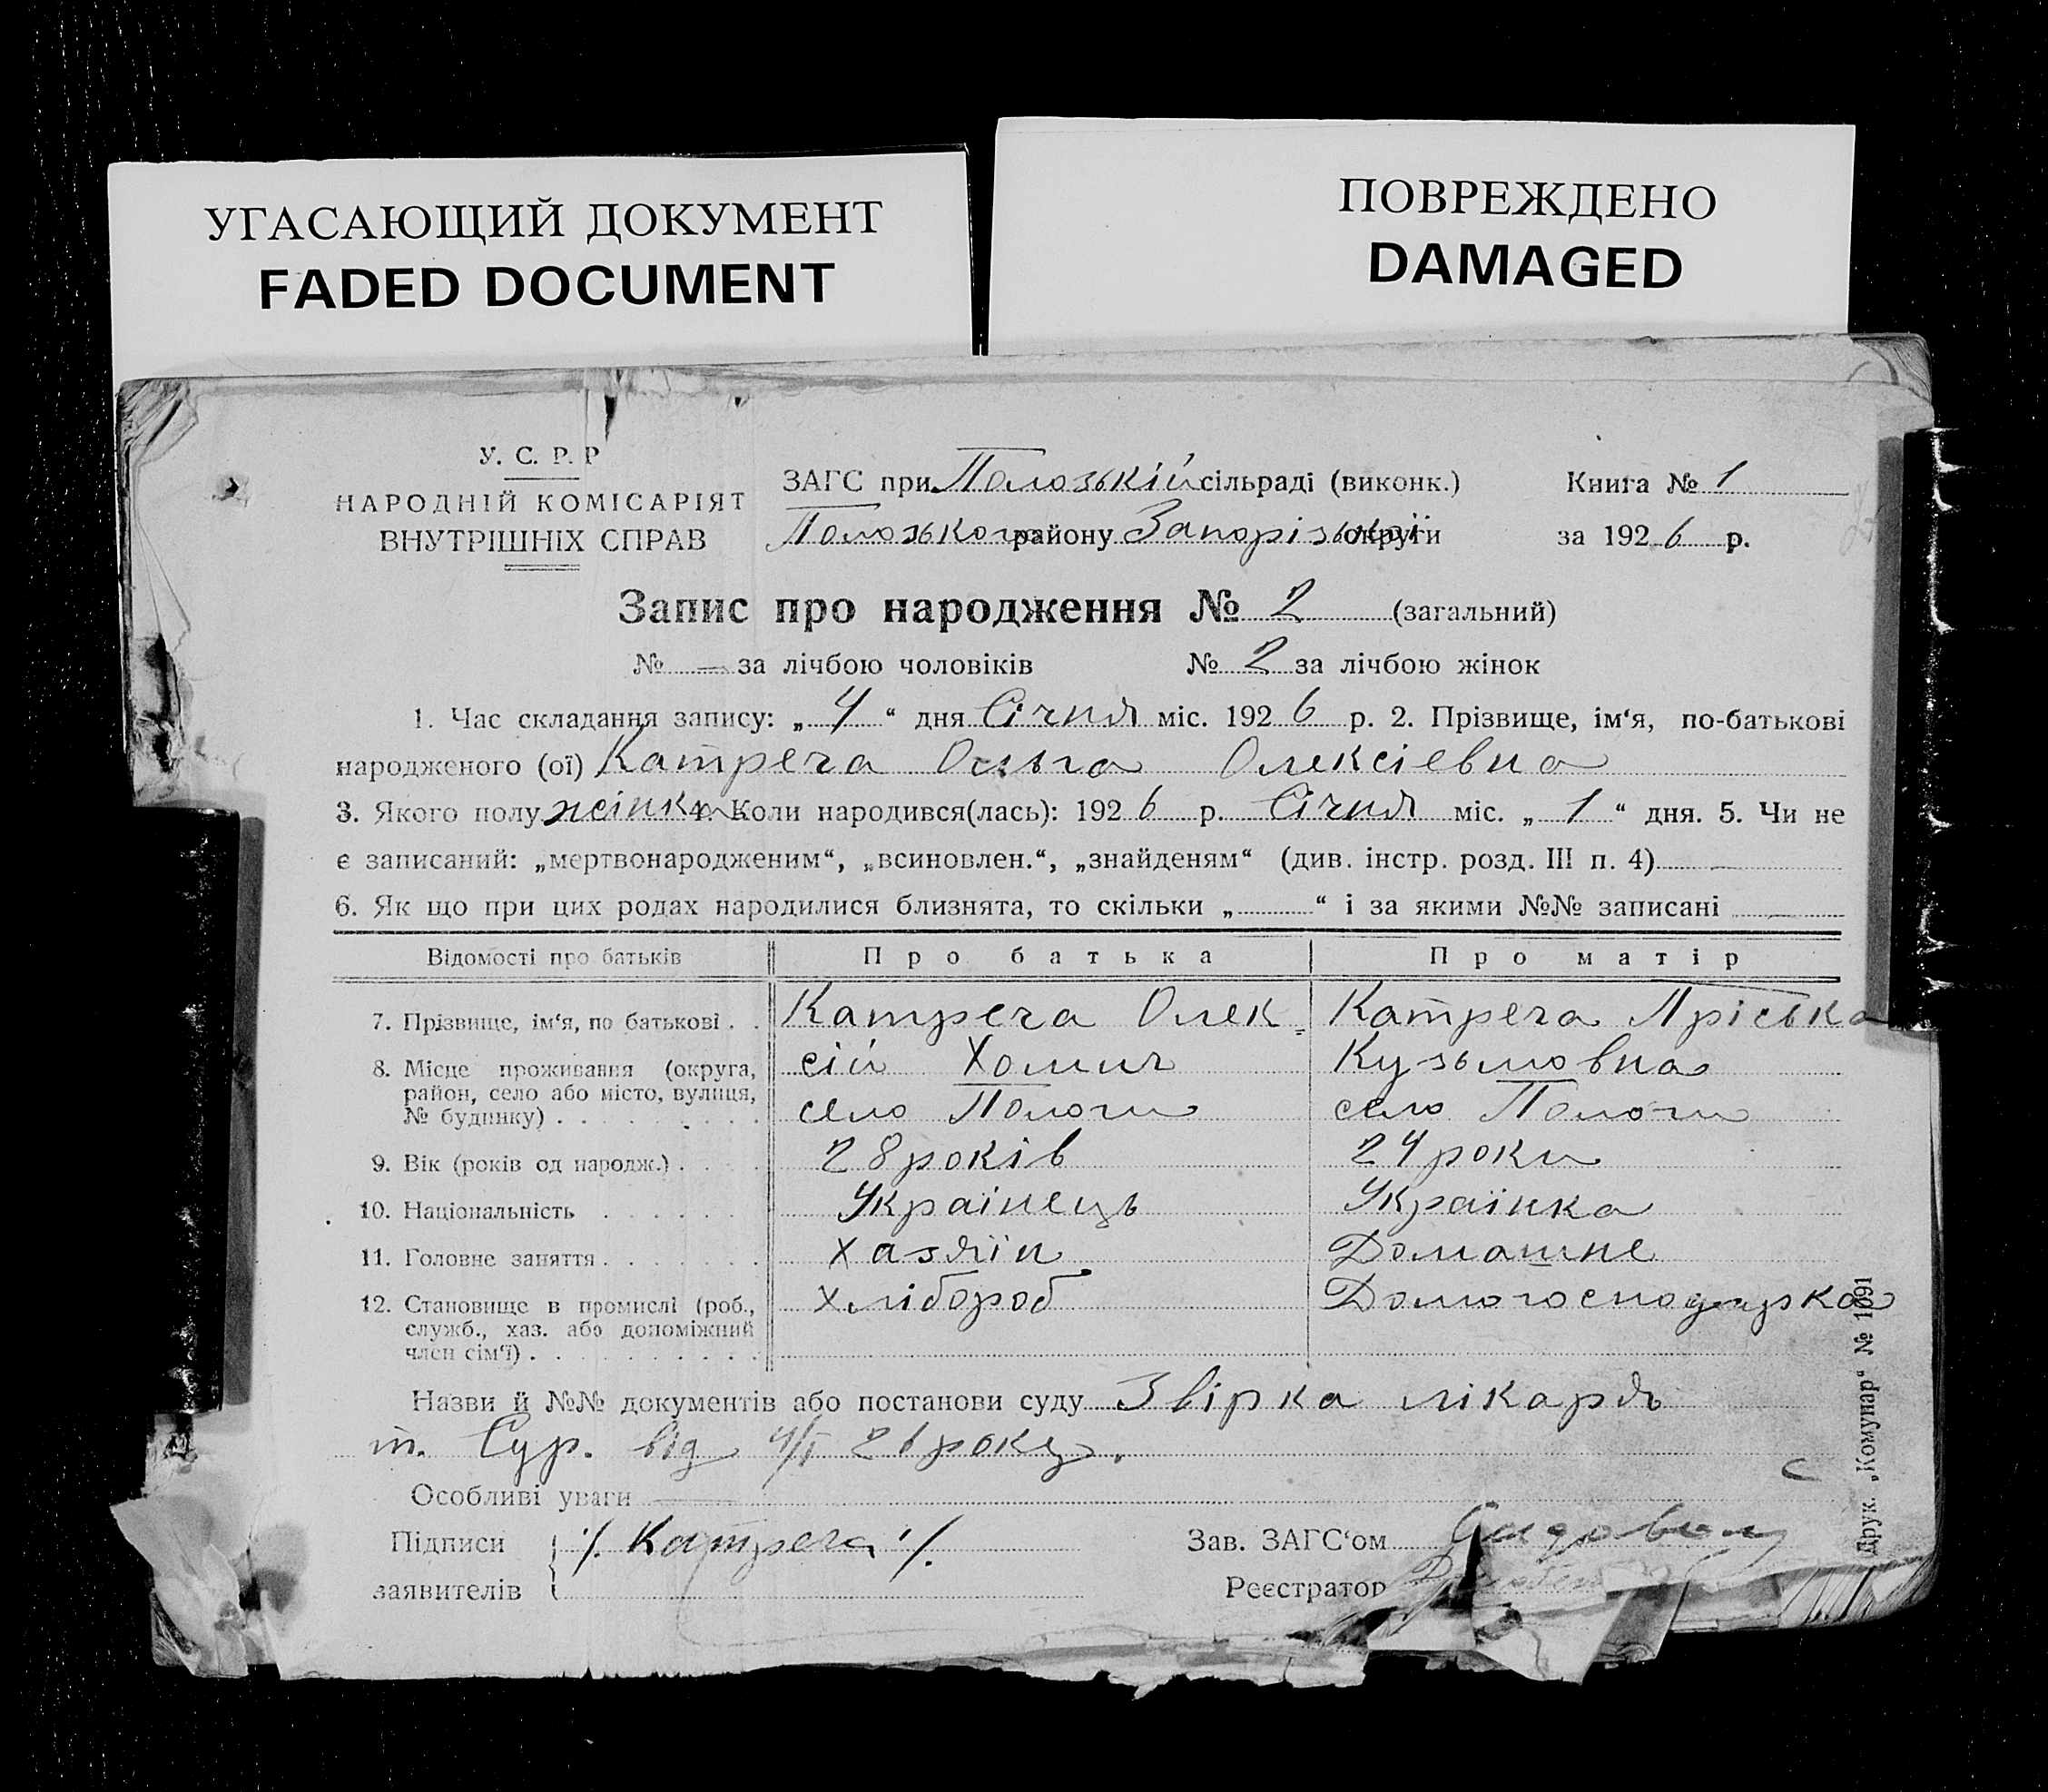 УГАСАЮЩИЙ ДОКУМЕНТ
FADED DOCUMENT
ПОВРЕЖДЕНО
DAMAGED
У. С. Р. Р
НАРОДНІЙ КОМІСАРІЯТ
ВНУТРІШНІХ СПРАВ
ЗАГС при Полозькій сільраді (виконк.)
Полозького району Запорізької округи
Книга № 1
за 1926 р.
Запис про народження № 2 (загальний)
№ — за лічбою чоловіків № 2 за лічбою жінок
1. Час складання запису: „ 4 “ дня Січня міс. 1926 р. 2. Прізвище, ім‘я, по-батькові
народженого (ої) Катреча Ольга Олексіевна
3. Якого полу жінка 4. Коли народився(лась): 1926 р. Січня міс. „ 1 “ дня. 5. Чи не
є записаний: „мертвонародженим“, „всиновлен.“, „знайденям“ (див. інстр. розд. III п. 4) —
6. Як що при цих родах народилися близнята, то скільки „ “ і за якими №№ записані —
Відомості про батьків Про батька Про матір
7. Прізвище, ім‘я, по батькові . . Катреча Олек- Катреча Пріська
сій Хомич Кузьмовна
8. Місце проживання (округа,
район, село або місто, вулиця,
№ будинку) . . . . . . . . . село Пологи село Пологи
9. Вік (років од народж.) . . . . 28 років 24 роки
10. Національність . . . . . . Українець Українка
11. Головне заняття . . . . . . . Хазяїн Домашне
12. Становище в промислі (роб.,
служб., хаз. або допоміжний
член сім‘ї) . . . . . . . . . . Хлібороб Домогосподарка
Назви й №№ документів або постанови суду Звірка лікаря
т. Сур. від 4/I 26 року.
Особливі уваги —
Підписи
заявителів
/. Катреча /.
Зав. ЗАГС‘ом
Реєстратор
Друк. „Комунар“ № 1691